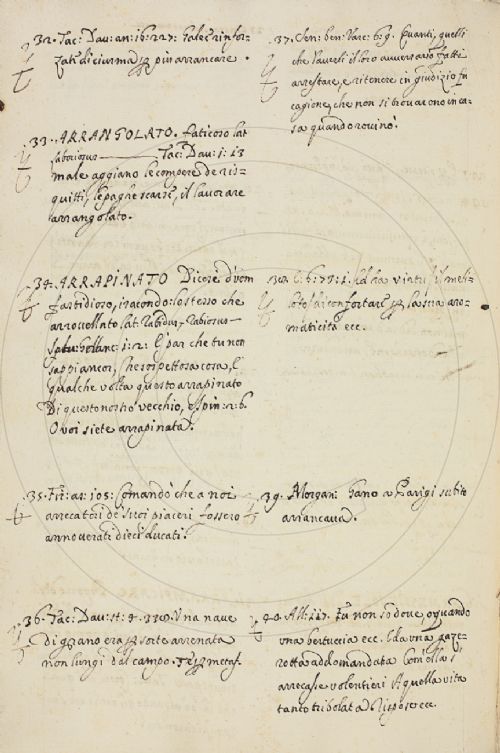 32. Tac: Dav: an: 16: 227: Galee rinfor-
zati di ciurma per più arrancare.
33. ARRANGOLATO. faticoso lat
laboriosus — Tac: Dav: 1: 13
male aggiano le compere de ris-
quitti, le paghe scarse, il lavorare
arrangolato.
34. ARRAPINATO Dicesi d'uom
fastidioso, iracondo: lo stesso che
arrovellato lat: Rabidus, Rabiosus —
1: 2: E par che tu non
sappi ancor, che sospettosa cosa, E
qualche volta questo arrapinato
Di questo nostro vecchio, e Spin: 2: 6.
O voi siete arrapinata.
35. as: 105: Comandò che a noi
arrecatori de suoi piaceri fossero
annoverati dieci ducati.
36. Tac: Dav: st: 4. 338. Una nave
di grano era per sorte arrenata
non lungi dal campo.
37. Sen: ben: Varc: 6: 9. Quanti, quelli
che l'averli il loro avversario fatti
arrestare, e ritenere in giudizio fu
cagione, che non si trovarono in ca-
sa quando rovinò.
38. ha virtù il meli-
loto di confortare per la sua aro-
maticità ecc.
39. Morgan: Gano a Parigi subito
arrancava.
40. All: 227. Fu non so dove, o quando
una bertuccia ecc. da una gaze-
rotta addomandata Com'ella s'
arrecasse volentieri A quella vita
tanto tribolata Rispose ecc.